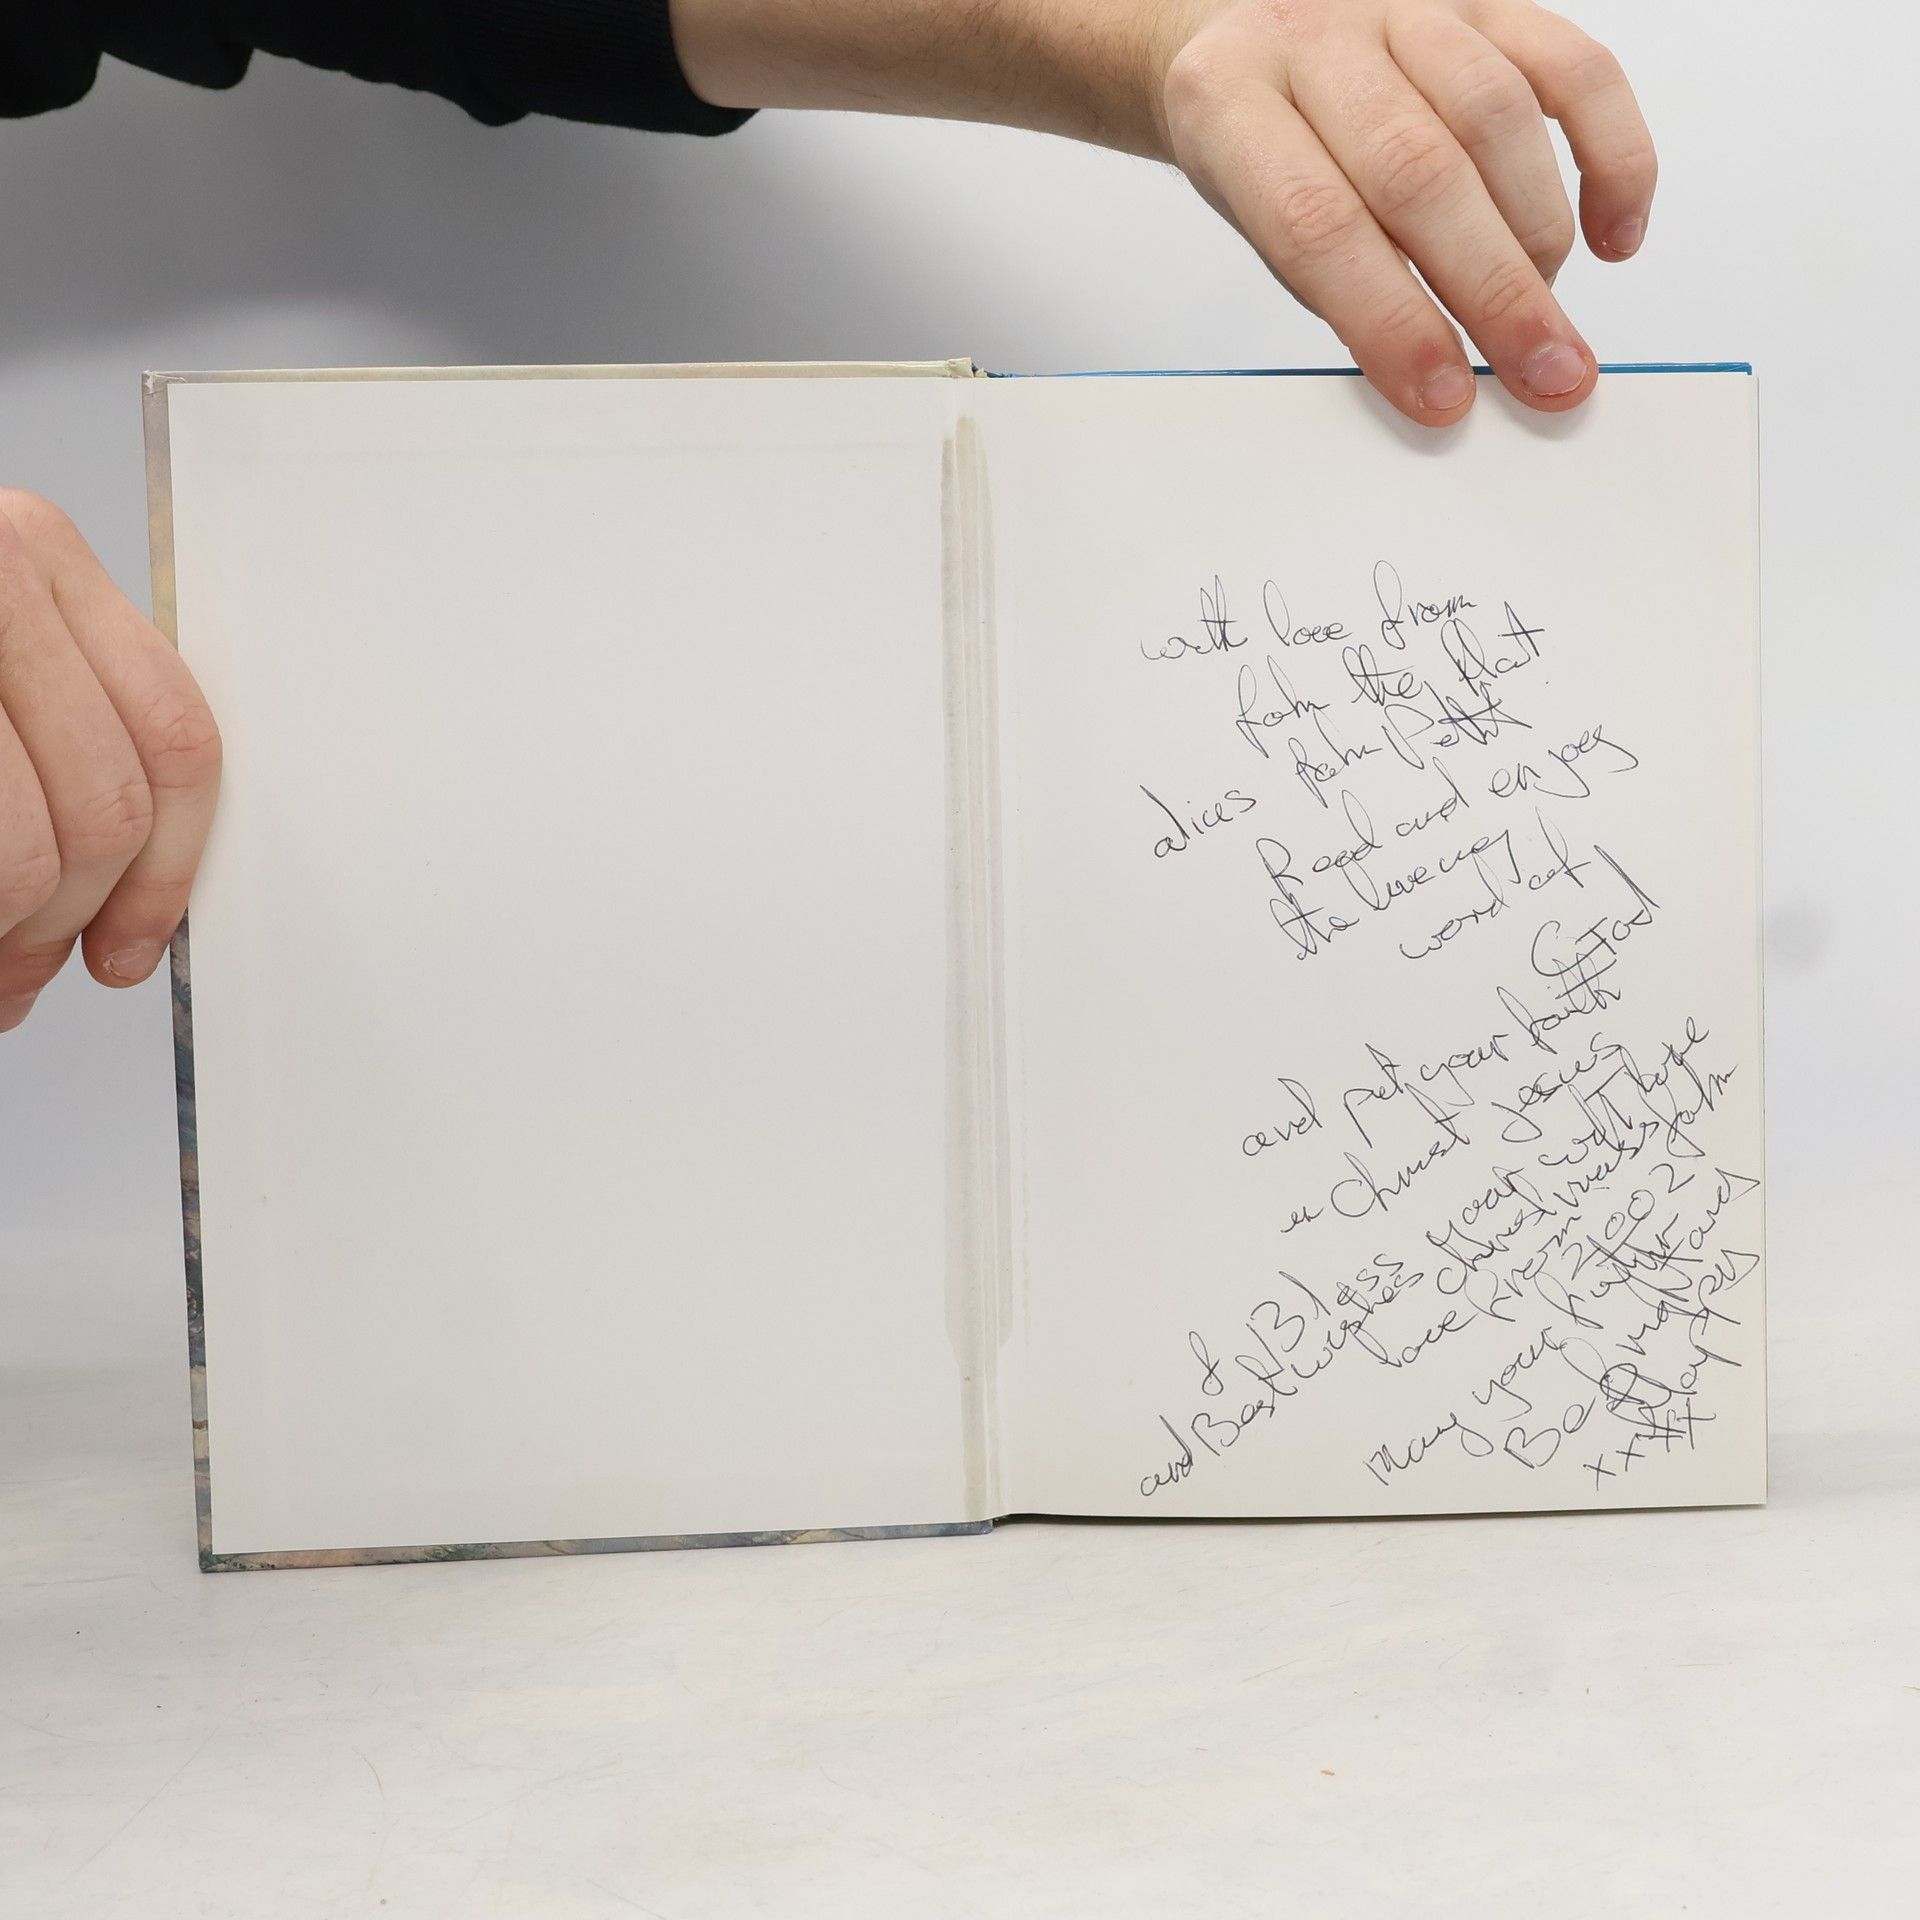 with love from
John the Hat
alices John Pettit
Read and enjoy
the liveing
word of
God
and put your faith
in Christ Jesus
& Bless your with love
and Best wishes Christmass John
love from 2002
May your faith
Be and
xx
xx